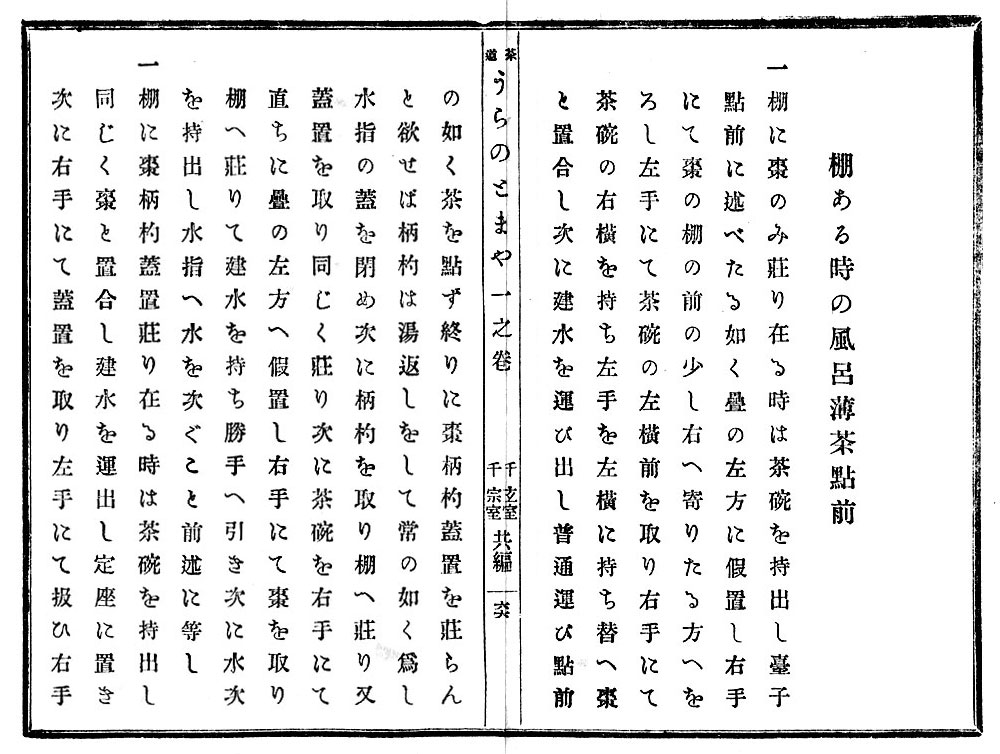 棚ある時の風呂薄茶點前
一棚に棗のみ莊り在る時は茶碗を持出し臺子
點前に述べたる如く疊の左方に假置し右手
にて棗の棚の前の少し右へ寄りたる方へを
ろし左手にて茶碗の左橫前を取り右手にて
茶碗の右橫を持ち左手を左橫に持ち替へ棗
と置合し次に建水を運び出し普通運び點前
茶道うらのとまや一之卷
千玄室
千宗室
共編
六六
の如く茶を點ず終りに棗柄杓蓋置を莊らん
と欲せば柄杓は湯返しをして常の如く爲し
水指の蓋を閉め次に柄杓を取り棚へ莊り又
蓋置を取り同じく莊り次に茶碗を右手にて
直ちに疊の左方へ假置し右手にて棗を取り
棚へ莊りて建水を持ち勝手へ引き次に水次
を持出し水指へ水を次ぐこと前述に等し
一棚に棗柄杓蓋置莊り在る時は茶碗を持出し
同じく棗と置合し建水を運出し定座に置き
次に右手にて蓋置を取り左手にて扱ひ右手